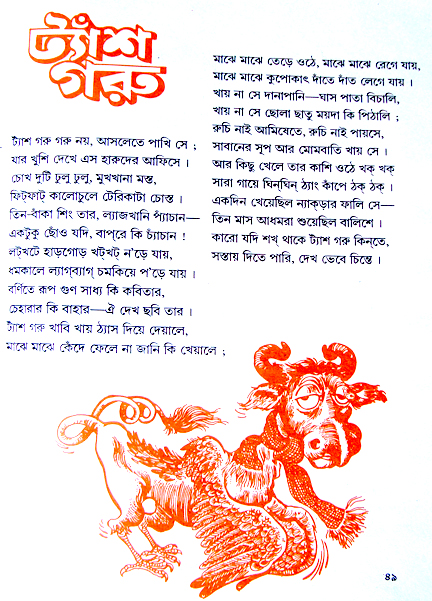 ট্যাঁশ
গরু
ট্যাঁশ গরু গরু নয়, আসলেতে পাখি সে ;
যার খুশি দেখে এস হারুদের আফিসে ।
চোখ দুটি ঢুলু ঢুলু, মুখখানা মস্ত,
ফিট্‌ফাট্ কালোচুলে টেরিকাটা চোস্ত ।
তিন-বাঁকা শিং তার, ল্যাজখানি প্যাঁচান—
একটুকু ছোঁও যদি, বাপ্‌রে কি চ্যাঁচান !
লট্‌খটে হাড়গোড় খট্‌খট্ ন'ড়ে যায়,
ধমকালে ল্যাগ্‌ব্যাগ্ চমকিয়ে প'ড়ে যায় ।
বর্ণিতে রূপ গুণ সাধ্য কি কবিতার,
চেহারার কি বাহার—ঐ দেখ ছবি তার ।
ট্যাঁশ গরু খাবি খায় ঠ্যাস দিয়ে দেয়ালে,
মাঝে মাঝে কেঁদে ফেলে না জানি কি খেয়ালে ;
মাঝে মাঝে তেড়ে ওঠে, মাঝে মাঝে রেগে যায়,
মাঝে মাঝে কুপোকাৎ দাঁতে দাঁত লেগে যায় ।
খায় না সে দানাপানি—ঘাস পাতা বিচালি,
খায় না সে ছোলা ছাতু ময়দা কি পিঠালি ;
রুচি নাই আমিষেতে, রুচি নাই পায়সে,
সাবানের সূপ আর মোমবাতি খায় সে ।
আর কিছু খেলে তার কাশি ওঠে খক্ খক্
সারা গায়ে ঘিন্‌ঘিন্ ঠ্যাং কাঁপে ঠক্ ঠক্ ।
একদিন খেয়েছিল ন্যাক্‌ড়ার ফালি সে—
তিন মাস আধমরা শুয়েছিল বালিশে ।
কারো যদি শখ্ থাকে ট্যাঁশ গরু কিন্‌তে,
সস্তায় দিতে পারি, দেখ ভেবে চিন্তে ।
৪৯